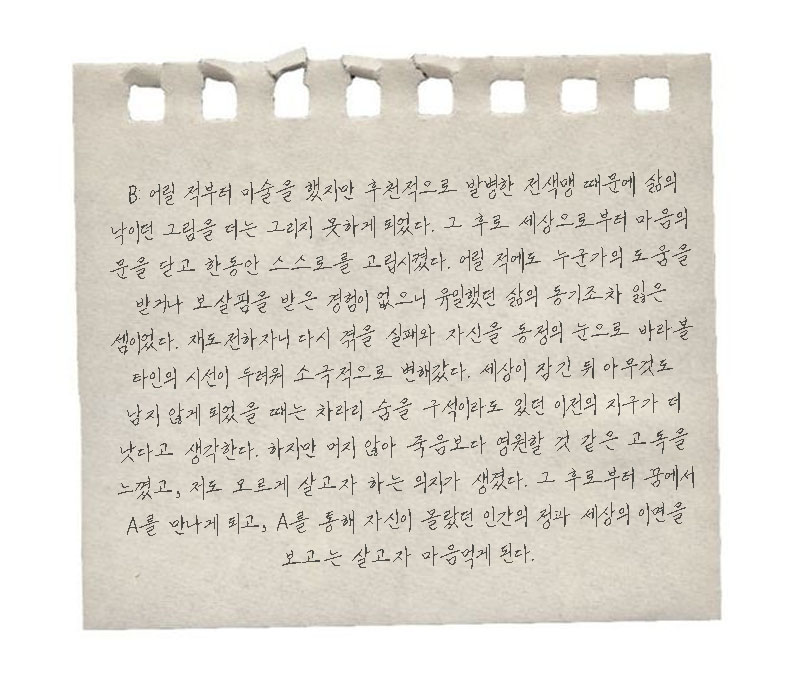 B: 어릴 적부터 미술을 했지만 후천적으로 발병한 전색맹 때문에 삶의
낙이던 그림을 더는 그리지 못하게 되었다. 그 후로 세상으로부터 마음의
문을 닫고 한동안 스스로를 고립시켰다. 어릴 적에도 누군가의 도움을
받거나 보살핌을 받은 경험이 없으니 유일했던 삶의 동기조차 잃은
셈이었다. 재도전하자니 다시 겪을 실패와 자신을 동정의 눈으로 바라볼
타인의 시선이 두려워 소극적으로 변해갔다. 세상이 잠긴 뒤 아무것도
남지 않게 되었을 때는 차라리 숨을 구석이라도 있던 이전의 지구가 더
낫다고 생각한다. 하지만 머지 않아 죽음보다 영원할 것 같은 고독을
느꼈고, 저도 모르게 살고자 하는 의지가 생겼다. 그 후로부터 꿈에서
A를 만나게 되고, A를 통해 자신이 몰랐던 인간의 정과 세상의 이면을
보고는 살고자 마음먹게 된다.